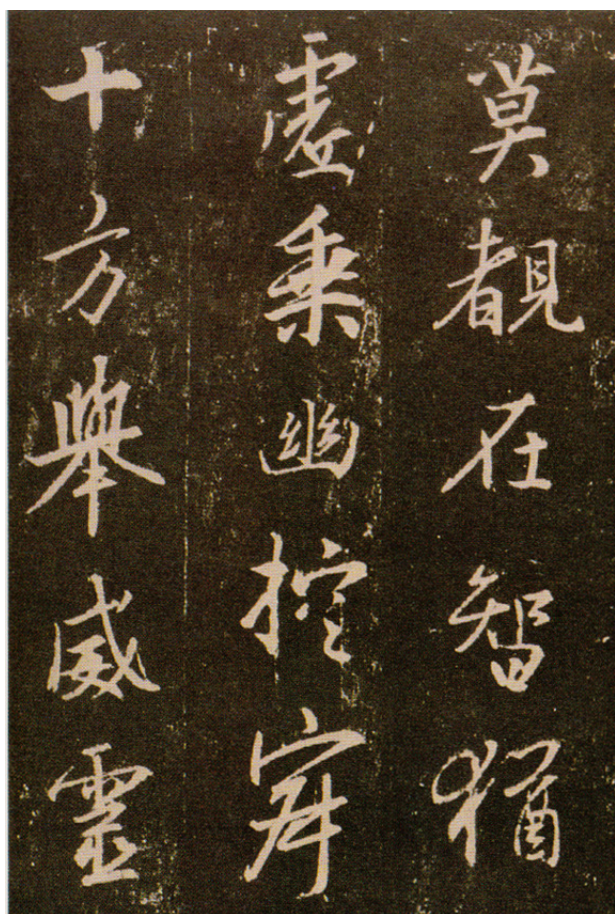 莫覩在智猶
虛乘幽控寂
十方舉威靈